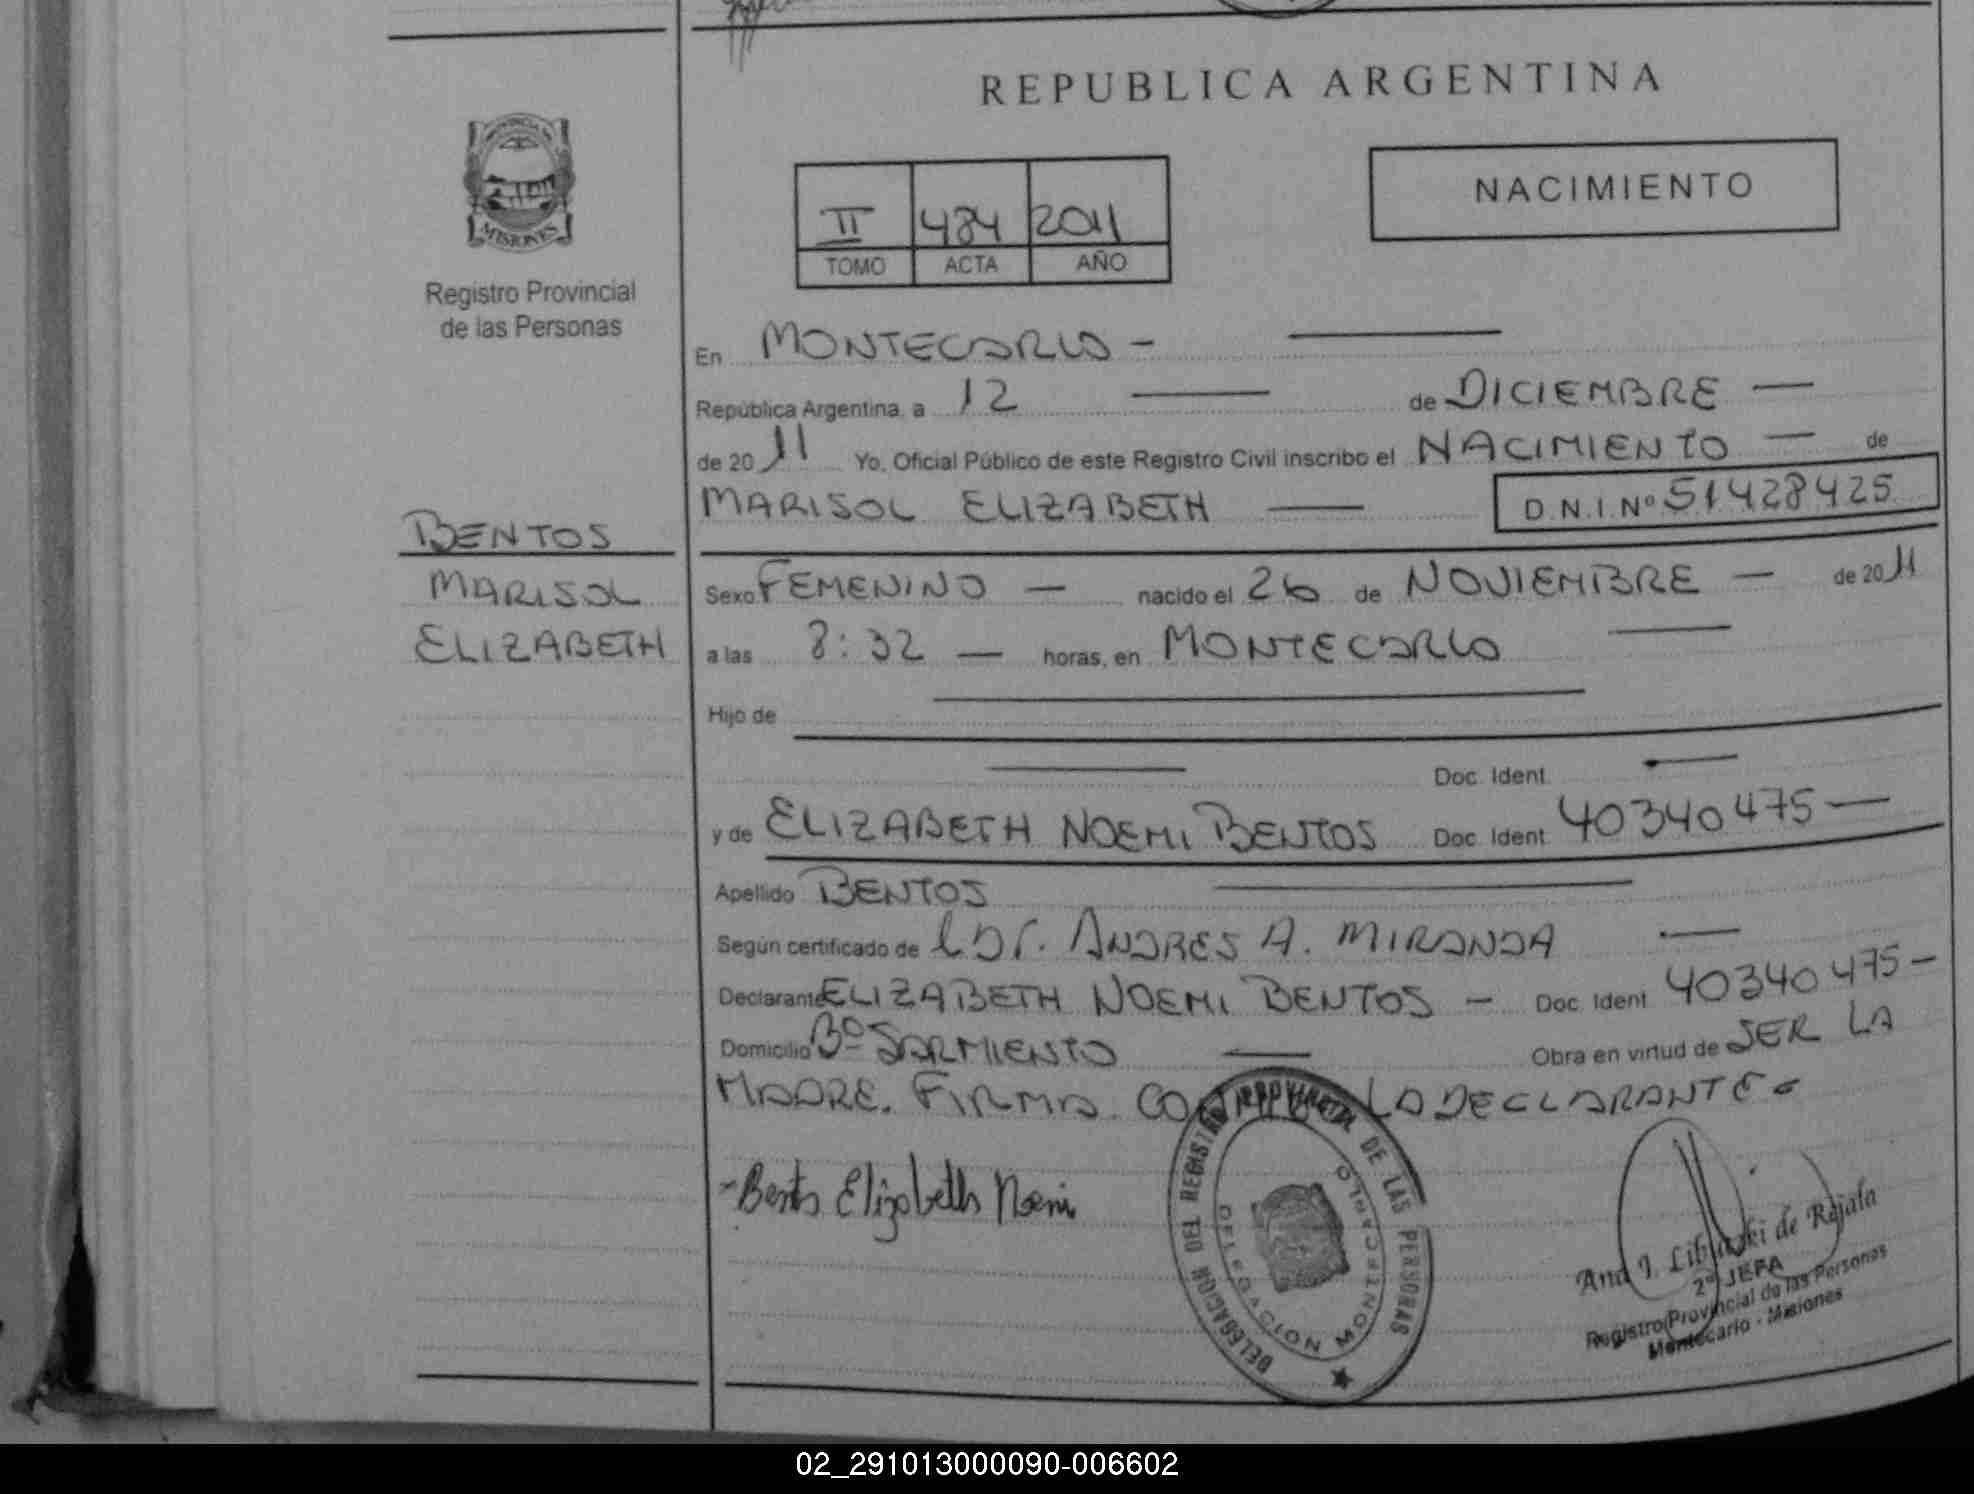 REPUBLICA ARGENTINA
PROVINCIA DE
MISIONES
Registro Provincial
de las Personas
NACIMIENTO
II 484 2011
TOMO ACTA AÑO
En MONTECARLO -
República Argentina, a 12 de DICIEMBRE
de 2011 Yo, Oficial Público de este Registro Civil inscribo el NACIMIENTO de
MARISOL ELIZABETH D.N.I.Nº 51428425
BENTOS
MARISOL
ELIZABETH
Sexo FEMENINO nacido el 26 de NOVIEMBRE de 2011
a las 8:32 horas, en MONTECARLO
Hijo de
Doc. Ident.
y de ELIZABETH NOEMI BENTOS Doc. Ident. 40340475
Apellido BENTOS
Según certificado de Dr. ANDRES A. MIRANDA
Declarante ELIZABETH NOEMI BENTOS - Doc. Ident. 40340475 -
Domicilio Bº SARMIENTO Obra en virtud de SER LA
MADRE. FIRMA LA DECLARANTE
- Bentos Elizabeth Noemi
DELEGACION DEL REGISTRO PROVINCIAL DE LAS PERSONAS
DELEGACION MONTECARLO
Ana I. de Rejala
2º JEFA
Registro Provincial de las Personas
Montecarlo - Misiones
02_291013000090-006602